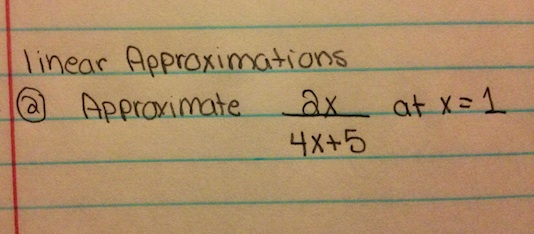 linear Approximations
② Approximate 2x/4x+5 at x=1